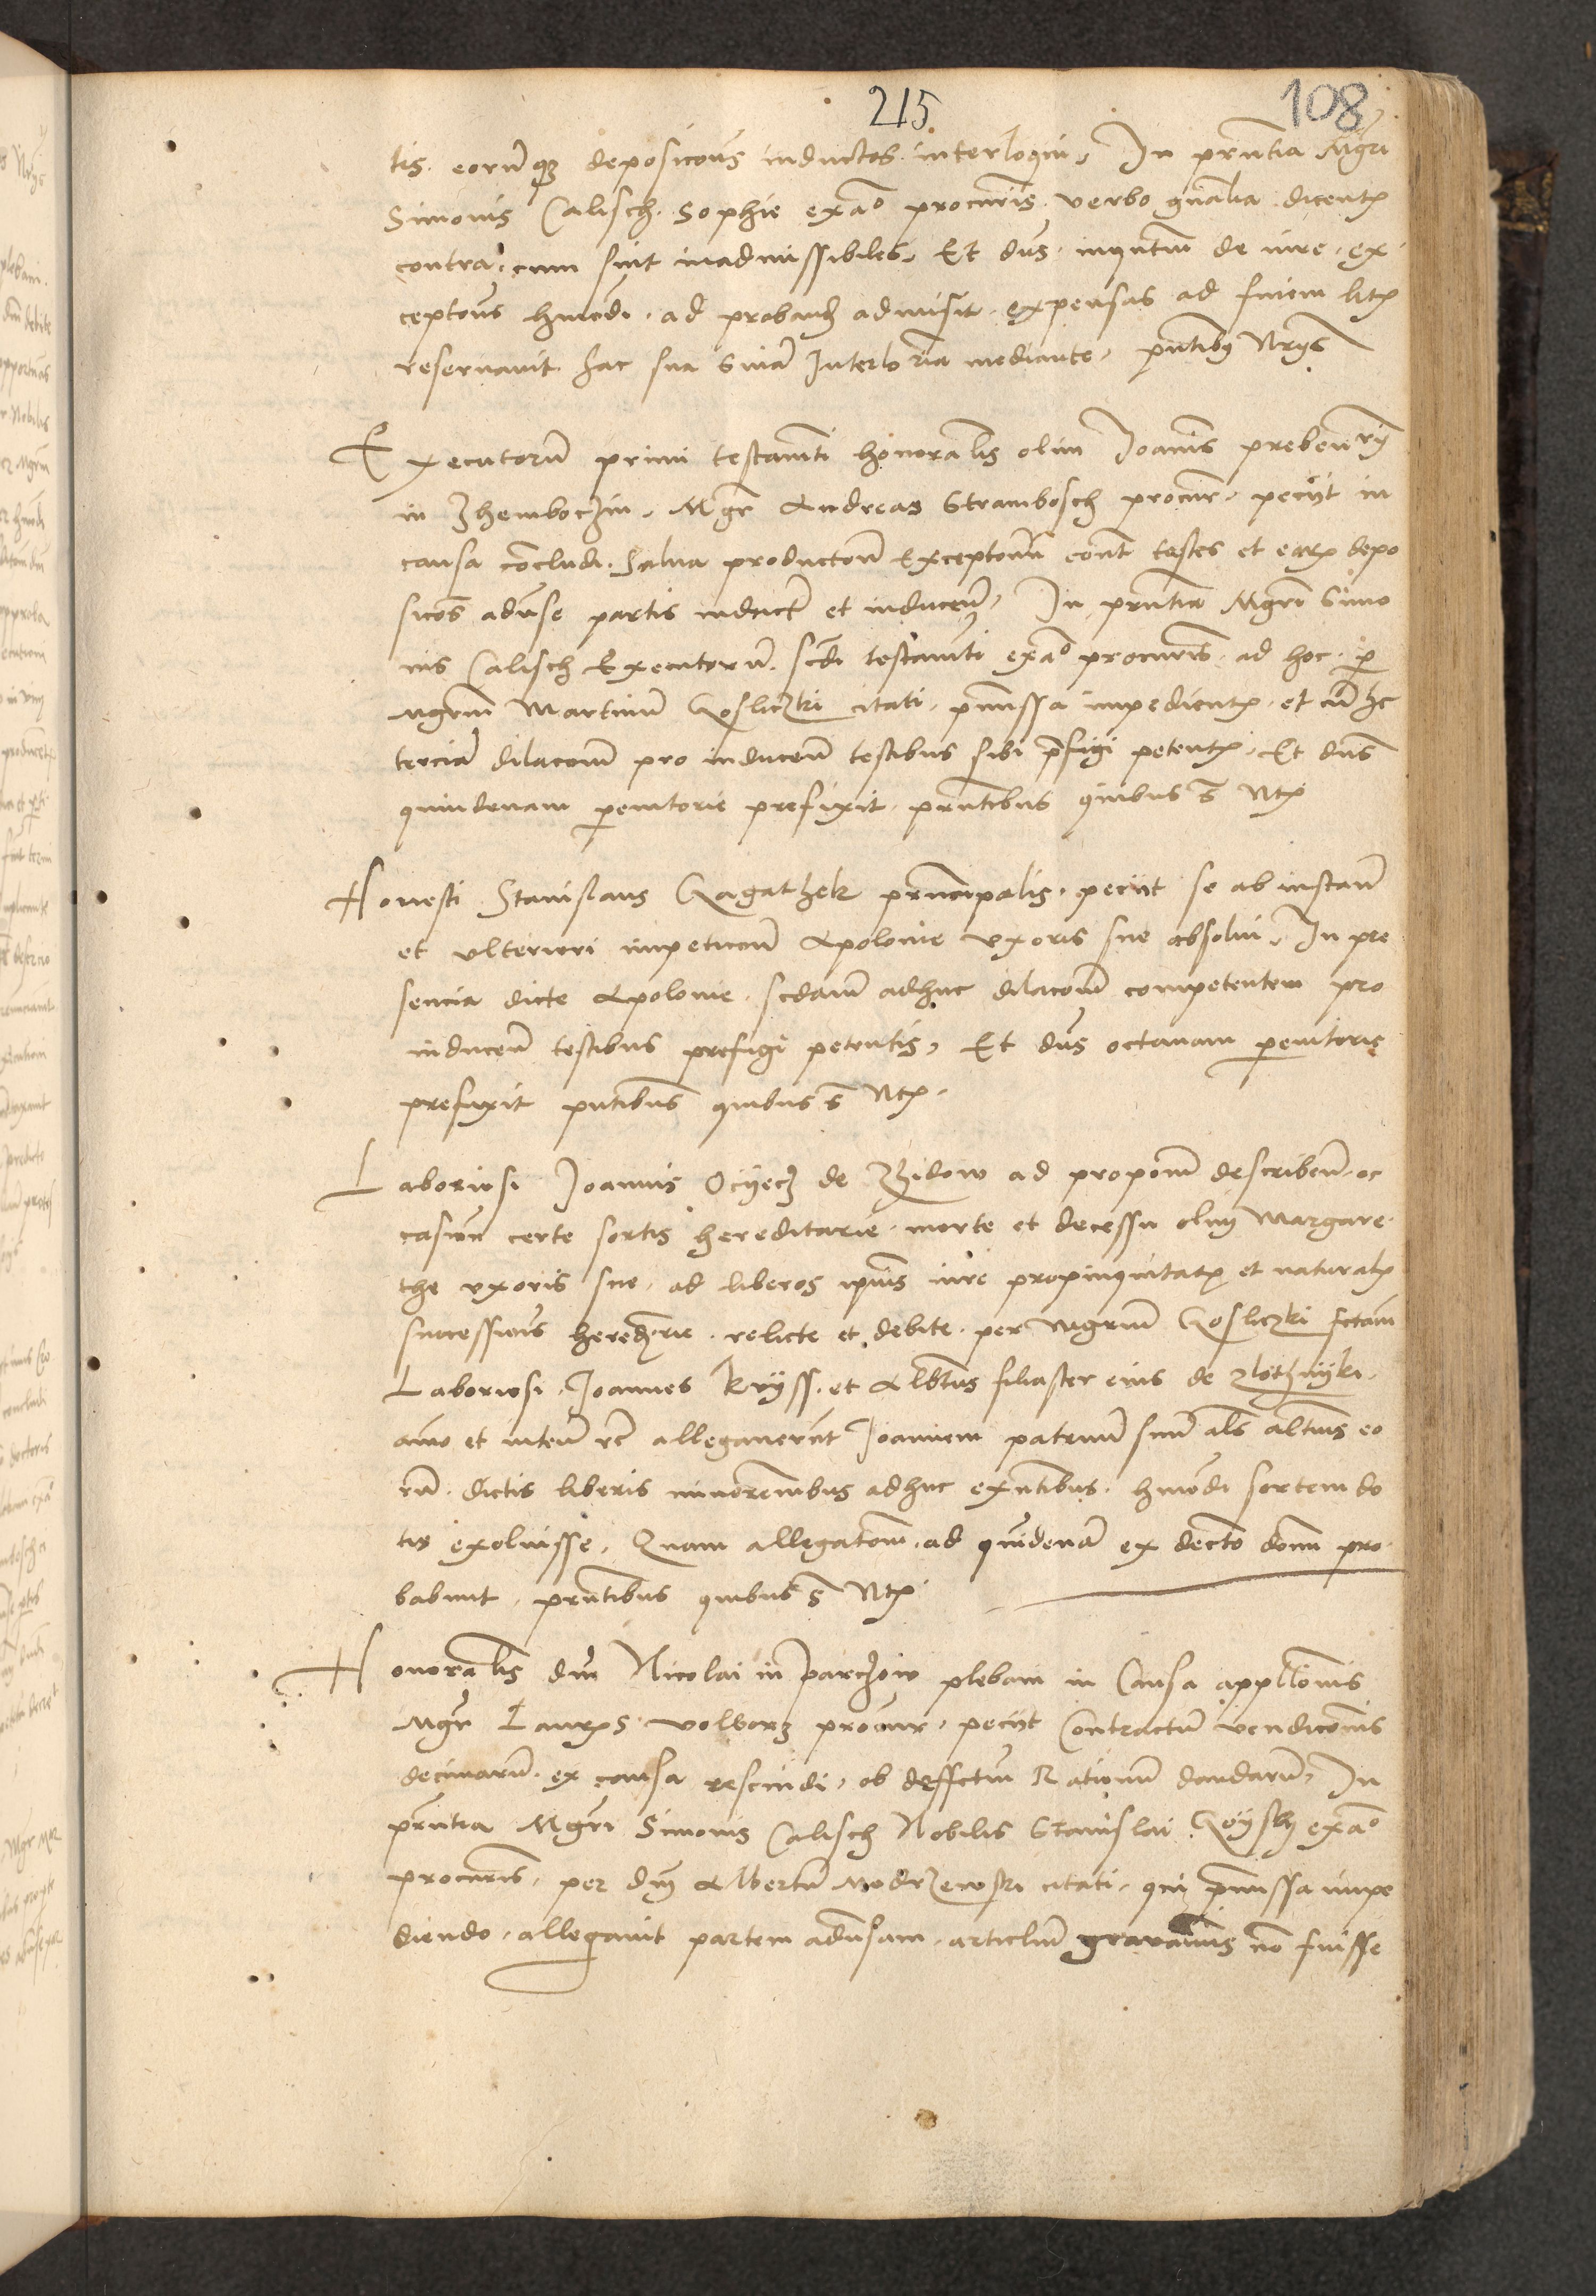 215
108
tis. eorumq3 deposicous inductos interloqui, In prntia Mgri
Simonis Calisch. Sophie exao procuris verbo gnalia dicentis
contra. cum sint inadmissibiles, Et dns. inquntum de iure. ex
ceptous hmodi. ad proband admisit. expensas ad finem litis
reseruauit hac sua Snia Interloria mediante. pntibus Nrys
Executorum primi testamti honorabilis olim Joanis prebenrii
in Zhemboczin. Mgr Andreas Strambosch procur. peciit in
causa concludi. Salua productoum exceptonum cont testes et earum depo
sicos aduse partis induct et inducen, In prntia Mgri Simo
nis Calisch Executorum. scdi testamti exao procuris. ad hoc. per
Mgrum Martinum Gosliczki citati. premissa impedientis. et cum hc
terciam dilaconm pro inducen testibus sibi prefigi petentis. Et dns
quindenam peremtorie prefixit. prntibus quibus s Ntis
Honesti Stanislaus Gagathek principalis. peciit se ab instan
et vlteriori impeticoum Apolonie vxoris sue absolui. In pre
sencia dicte Apolonie. scdam adhuc dilaconm competentem pro
inducen testibus prefigi petentis, Et dns octauam peremtorie
prefixit pntibus quibus s Ntis.
Laboriosi Joannis Ociecz de Zhidow ad proponm describen. oc
casion certe sortis hereditarie. morte et decessu olim Margare
the vxoris sue. ad liberos ipius iure propinquitatis et naturalis
successious heredrie. relicte et debite. per Mgrum Gosliczki fctam
Laboriosi. Joannes Kryss. et Albtus filiaster eius de Zlothnyki.
animo et inten re allegauerunt Joannem patruum suum als altius eo
rum. dictis liberis minorennibus adhuc exntibus. hmodi sortem do
tis exoluisse. Quam allegatom. ad quindenam ex decto domi pro
babunt. prntibus quibus s Ntis
Honorabilis dni Nicolai in Parczow plebani in Causa appllonis
Mgr Laurs Volborz procur. peciit Contractum vendiconis
decimarum. ex causa rescindi, ob deffctum Rationum dandarum, In
prntia Mgri Simonis Calisch Nobilis Stanislai Goysch exao
procuris, per dnm Albertum Modrzewski citati. qui premissa impe
diendo. allegauit partem aduersam. articlum grauaminis no fuisse